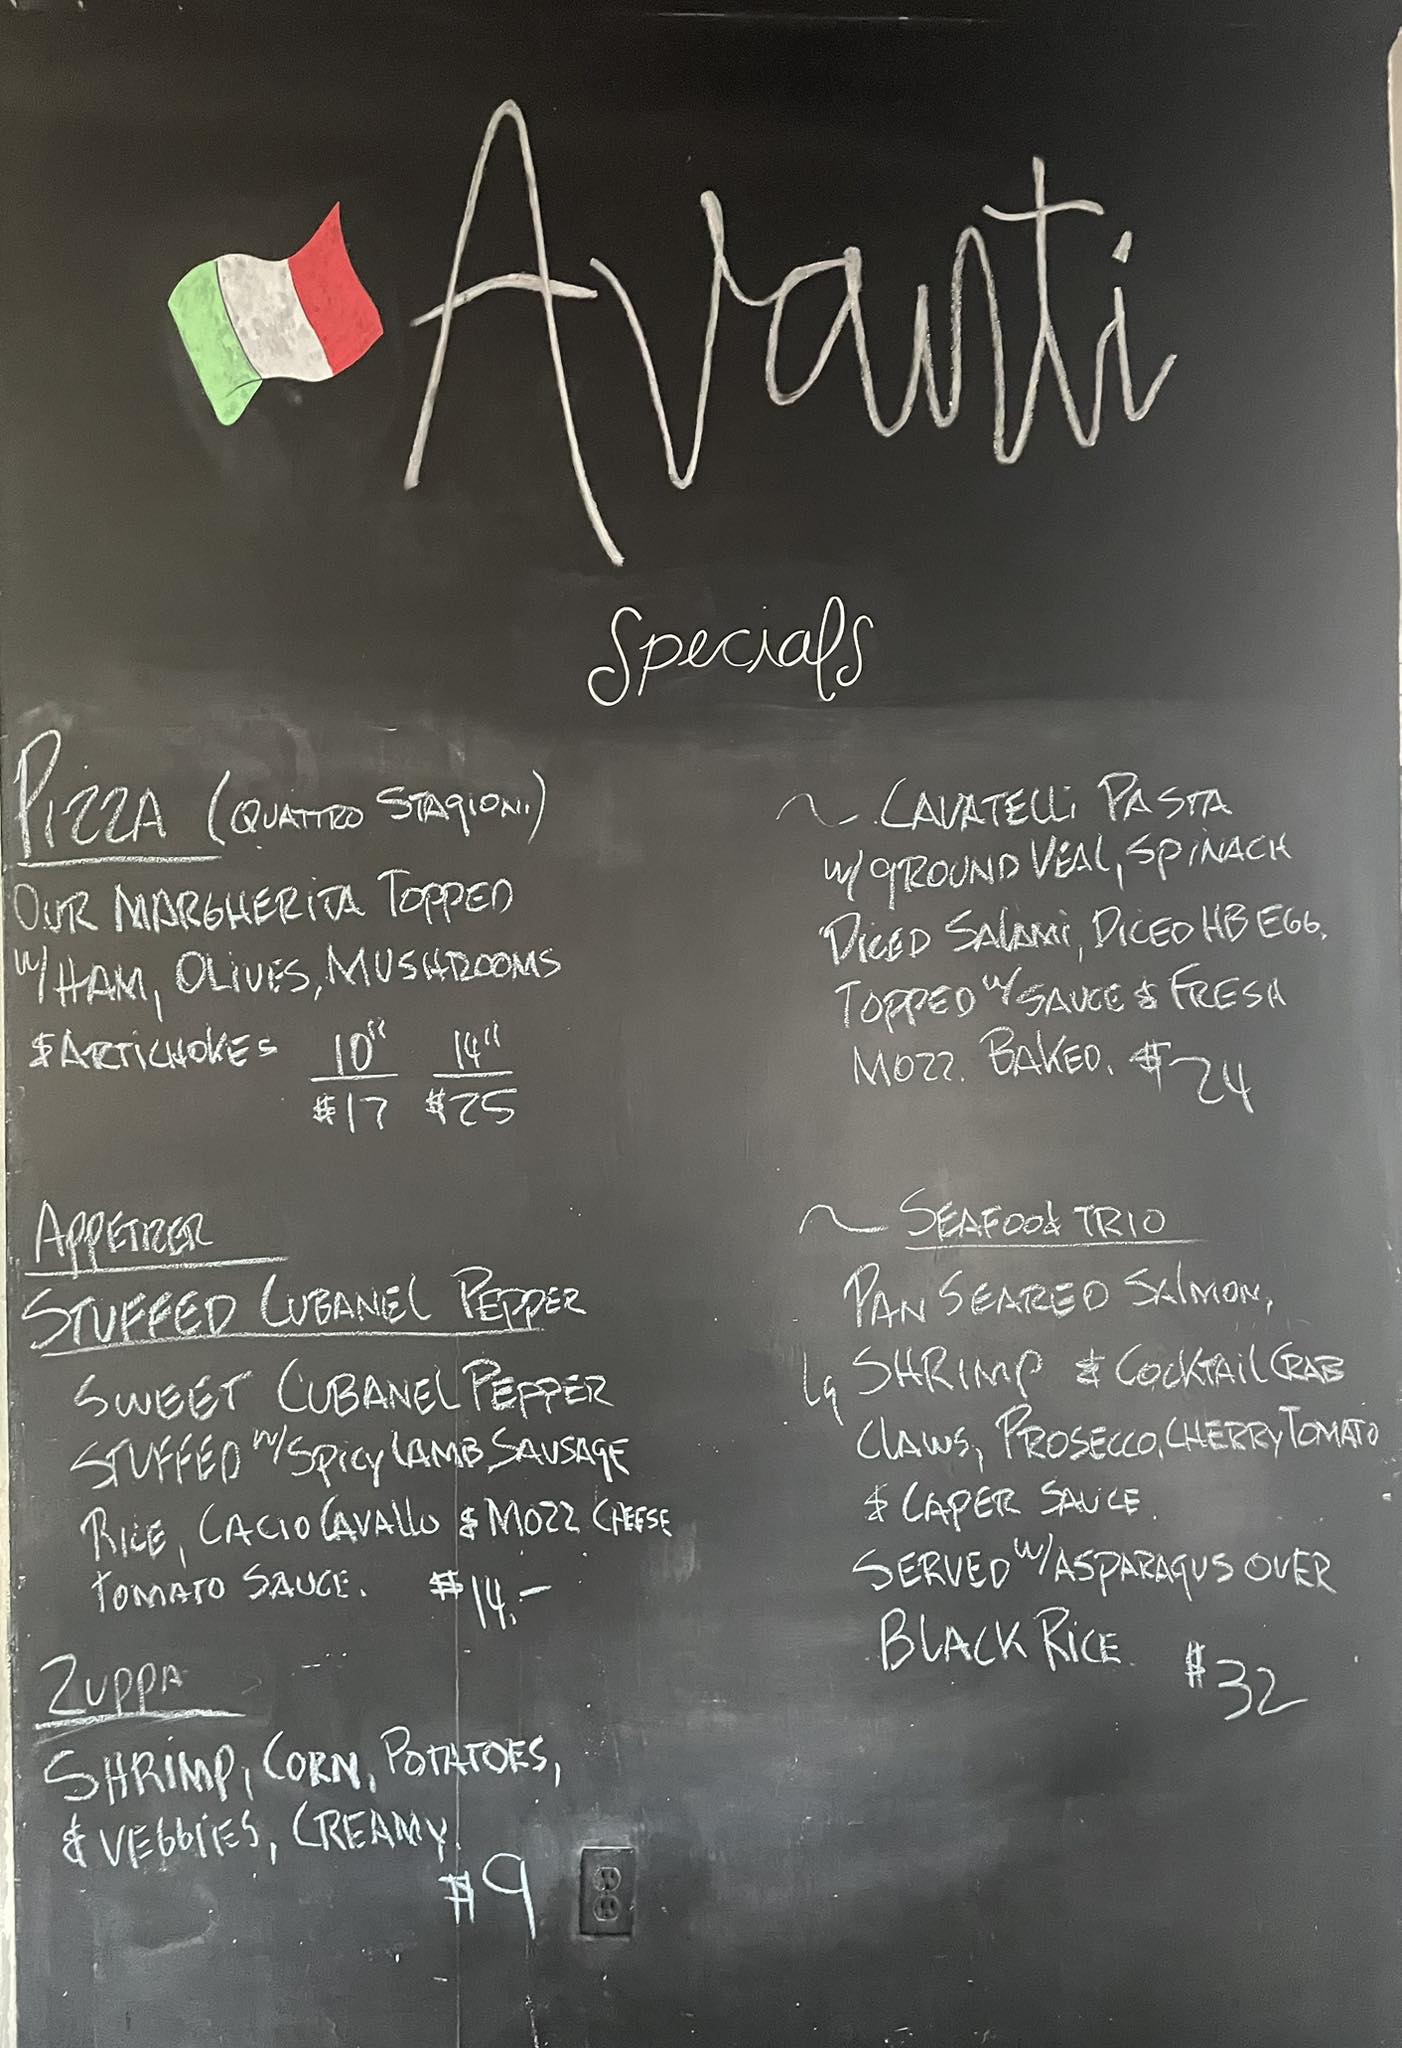 Avanti
Specials
PIZZA (QUATTRO STAGIONI)
OUR MARGHERITA TOPPED
W/ HAM, OLIVES, MUSHROOMS
& ARTICHOKES 10" 14"
$17 $25
APPETIZER
STUFFED CUBANEL PEPPER
SWEET CUBANEL PEPPER
STUFFED W/ SPICY LAMB SAUSAGE
RICE, CACIO CAVALLO & MOZZ CHEESE
TOMATO SAUCE. $14.-
ZUPPA
SHRIMP, CORN, POTATOES,
& VEGGIES, CREAMY
$9
~ CAVATELLI PASTA
W/ GROUND VEAL, SPINACH
DICED SALAMI, DICED HB EGG,
TOPPED W/ SAUCE & FRESH
MOZZ. BAKED. $24
~ SEAFOOD TRIO
PAN SEARED SALMON,
Lg SHRIMP & COCKTAIL CRAB
CLAWS, PROSECCO, CHERRY TOMATO
& CAPER SAUCE.
SERVED W/ ASPARAGUS OVER
BLACK RICE. $32